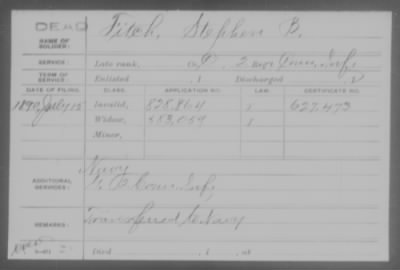 DEAD
NAME OF SOLDIER: Fitch, Stephen B.
SERVICE: Late rank, Co. 2 Reg't Conn. Inf.
TERM OF SERVICE: Enlisted , 1 Discharged , 1
DATE OF FILING. CLASS. APPLICATION NO. LAW. CERTIFICATE NO.
1890, July 15 Invalid, 828.864 627.473
Widow,
Minor,
ADDITIONAL SERVICES: Navy
Conn. Inf.
REMARKS: Transferred to Navy
Died , 1 , at